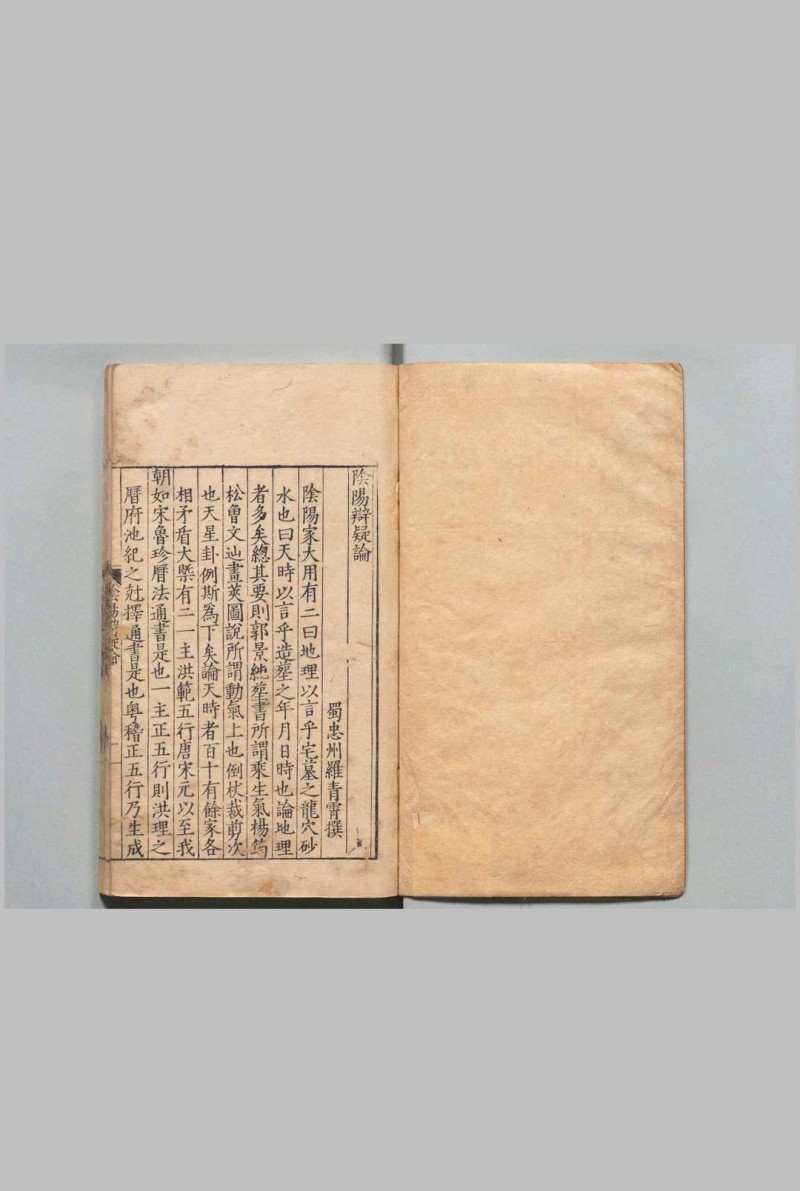 陰陽辯疑論
蜀忠州羅青霄撰
陰陽家大用有二曰地理以言乎宅墓之龍穴砂
水也曰天時以言乎造塟之年月日時也論地理
者多矣總其要則郭景純塟書所謂乘生氣楊筠
松曾文辿畫莢圖說所謂動氣上也倒杖裁剪次
也天星卦例斯為下矣論天時者百十有餘家各
相矛盾大槩有二一主洪範五行唐宋元以至我
朝如宋魯珍曆法通書是也一主正五行則洪理之
曆府池紀之尅擇通書是也粤稽正五行乃生成
陰陽辯疑論